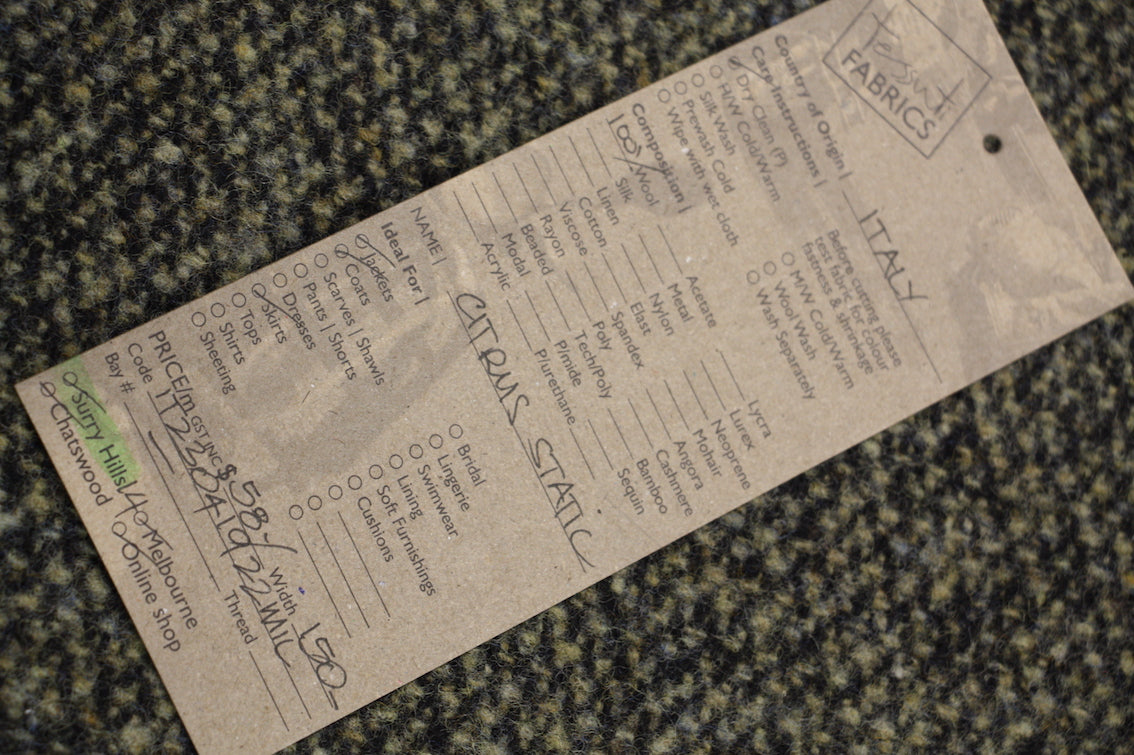 Tessuti
FABRICS
Country of Origin | ITALY
Care Instructions |
Dry Clean (P)
H/W Cold/Warm
Silk Wash
Prewash Cold
Wipe with wet cloth
Before cutting please
test fabric for colour
fastness & shrinkage
M/W Cold/Warm
Wool Wash
Wash Separately
Composition |
100% Wool
Silk
Linen
Cotton
Viscose
Rayon
Beaded
Modal
Acrylic
Acetate
Metal
Nylon
Elast
Spandex
Poly
Tech/Poly
P/mide
P/urethane
Lycra
Lurex
Neoprene
Mohair
Angora
Cashmere
Bamboo
Sequin
NAME | CITRUS STATIC
Ideal For |
Jackets
Coats
Scarves | Shawls
Pants | Shorts
Dresses
Skirts
Tops
Shirts
Sheeting
Bridal
Lingerie
Swimwear
Lining
Soft Furnishings
Cushions
PRICE/m GST INC $ 58/- Width 150
Code
Bay # Thread
Surry Hills Melbourne
Chatswood Online shop